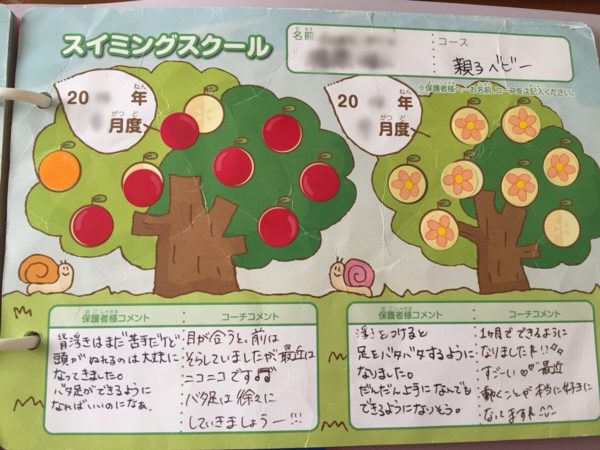 スイミングスクール
名前
なまえ
コース
親子ベビー
※保護者様へ…お名前、コースを記入ください。
20 年
ねん
月度
がつど
20 年
ねん
月度
がつど
保護者様コメント
ほごしゃさま
コーチコメント
背浮きはまだ苦手だけど
頭がぬれるのは大丈夫に
なってきました。
バタ足ができるように
なればいいのになぁ。
目が合うと、前は
そらしていましたが最近は
ニコニコです♫
バタ足は徐々に
していきましょうー!!!
保護者様コメント
ほごしゃさま
コーチコメント
浮きをつけると
足をバタバタするように
なりました。
だんだん上手になんでも
できるようになりそう。
1ヶ月でできるように
なりましたネ!!
すごーい♡♡最近
動くことが本当に好きに
なってますネ^^